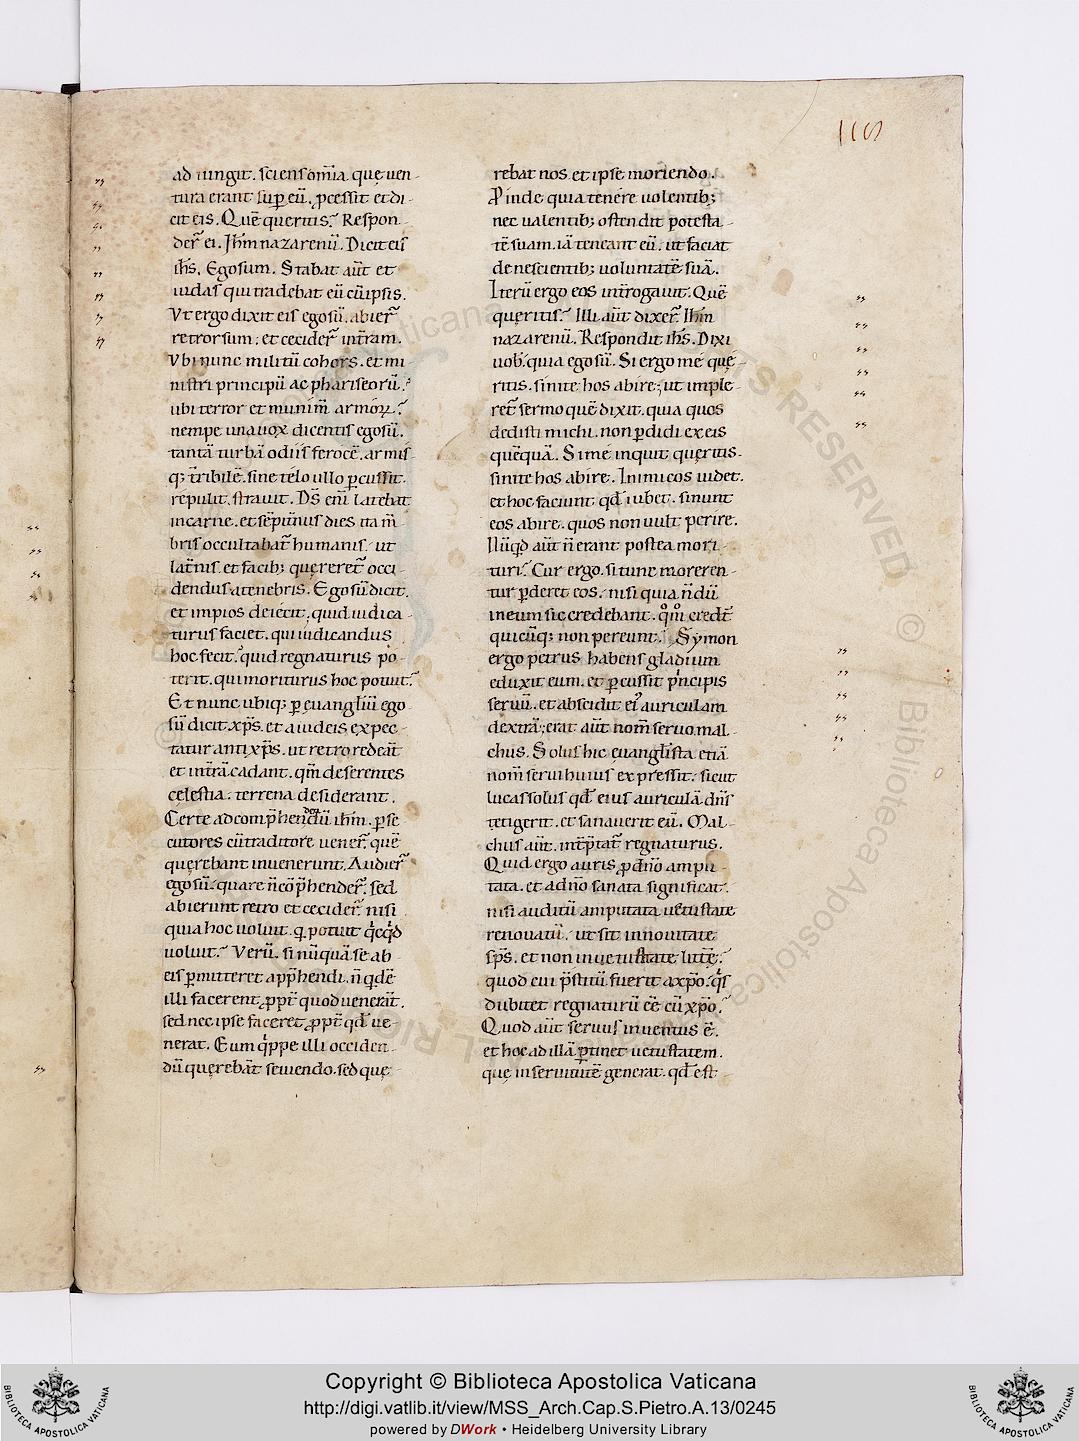 115
ad iungit. sciens om̅ia quę uen-
tura erant sup̲ eu̅. p̲cessit et di-
cit eis. Que̅ queritis? Respon-
der̅ ei. Ihm̅ nazarenu̅. Dicit eis
ihs̅. Ego sum. Stabat aut̅ et
iudas qui tradebat eu̅ cu̅ ipsis.
Vt ergo dixit eis ego su̅. abier̅
retrorsum; et cecider̅ in tr̅am.
Vbi nunc militu̅ cohors. et mi-
nistri principu̅ ac phariseoru̅?
ubi terror et munim̅ armoꝝ?
nempe una uox dicentis ego su̅.
tanta̅ turba̅ odiis feroce̅. armis
q; tr̅ibile̅. sine telo ullo p̲cussit.
repulit. strauit. Ds̅ eni̅ latebat
in carne. et se̅pit̅nus dies ita m̅-
bris occultabat̅ humanis. ut
lat̅nis. et facib; quęreret̅ occi-
dendus a tenebris. Ego su̅ dicit.
et impios deiecit. quid iudica-
turus faciet. qui iudicandus
hoc fecit? quid regnaturus po-
terit. qui moriturus hoc potuit?
Et nunc ubiq; p̲ euangliu̅ ego
su̅ dicit xps̅. et a iudeis expec-
tatur antixps̅. ut retro redea̅t
et in tr̅a̅ cadant. qm̅ deserentes
cęlestia; terrena desiderant.
Certe ad comp̅henden̅du̅ ihm̅. p̲se
cutores cu̅ traditore uener̅. que̅
quęrebant inuenerunt. Audier̅
ego su̅. quare n̅ co̅p̅hender̅. sed
abierunt retro et cecider̅ nisi
quia hoc uoluit. q. potuit qͥcqͥd
uoluit? Veru̅. si nu̅qua̅ se ab
eis p̲mitteret app̅hendi. n̅ qͥde̅
illi facerent p̲pt̅ quod uenera̅t.
sed nec ipse faceret p̲pt̅ qd̅ ue-
nerat. Eum qͥppe illi occiden-
du̅ quęreba̅t seuiendo. sed quę-
rebat nos et ipse moriendo.
Pinde quia tenere uolentib;
nec ualentib; ostendit potesta-
te̅ suam. ia̅ teneant eu̅. ut faciat
de nescientib; uoluntate̅ sua̅.
Iteru̅ ergo eos int̅rogauit. Que̅
quęritis? Illi aut̅ dixer̅. Ihm̅
nazarenu̅. Respondit ihs̅. Dixi
uob̅. quia ego su̅. Si ergo me quę-
ritis. sinite hos abire; ut imple-
ret̅ sermo que̅ dixit. quia quos
dedisti michi. non p̲didi ex eis
que̅qua̅. Si me inquit quęritis.
sinite hos abire. Inimicos uidet.
et hoc faciunt qd̅ iubet. sinunt
eos abire. quos non uult perire.
Nu̅qͥd aut̅ n̅ erant postea mori-
turi? Cur ergo. si tunc moreren-
tur p̲deret eos. nisi quia n̅du̅
in eum sic credebant. qͦm̊ credt̅
quicu̅q; non pereunt? Symon
ergo petrus habens gladium
eduxit eum. et p̲cussit pͥncipis
seruu̅. et abscidit ei᷒ auriculam
dextra̅; erat aut̅ nom̅ seruo mal-
chus. Solus hic euangl̅ista etia̅
nom̅ serui huius expressit. sicut
lucas solus qd̅ eius auricula̅ dn̅s
tetigerit. et sanauerit eu̅. Mal-
chus aut̅. int̅p̲tat̅ regnaturus.
Quid ergo auris p̲ dn̅o ampu-
tata. et a dn̅o sanata significat.
nisi auditu̅ amputata uetustate
renouatu̅. ut sit in nouitate
sps̅. et non in uetustate litte̅?
quod cui p̅stitu̅ fuerit a xpo̅. qͥs
dubitet regnaturu̅ ee̅ cu̅ xpo̅?
Quod aut̅ seruus inuentus e̅.
et hoc ad illa̅ p̲tinet uetustatem.
quę in seruitute̅ generat. qd̅ est
Copyright © Biblioteca Apostolica Vaticana
http://digi.vatlib.it/view/MSS_Arch.Cap.S.Pietro.A.13/0245
powered by DWork • Heidelberg University Library
BIBLIOTECA APOSTOLICA VATICANA
BIBLIOTECA APOSTOLICA VATICANA